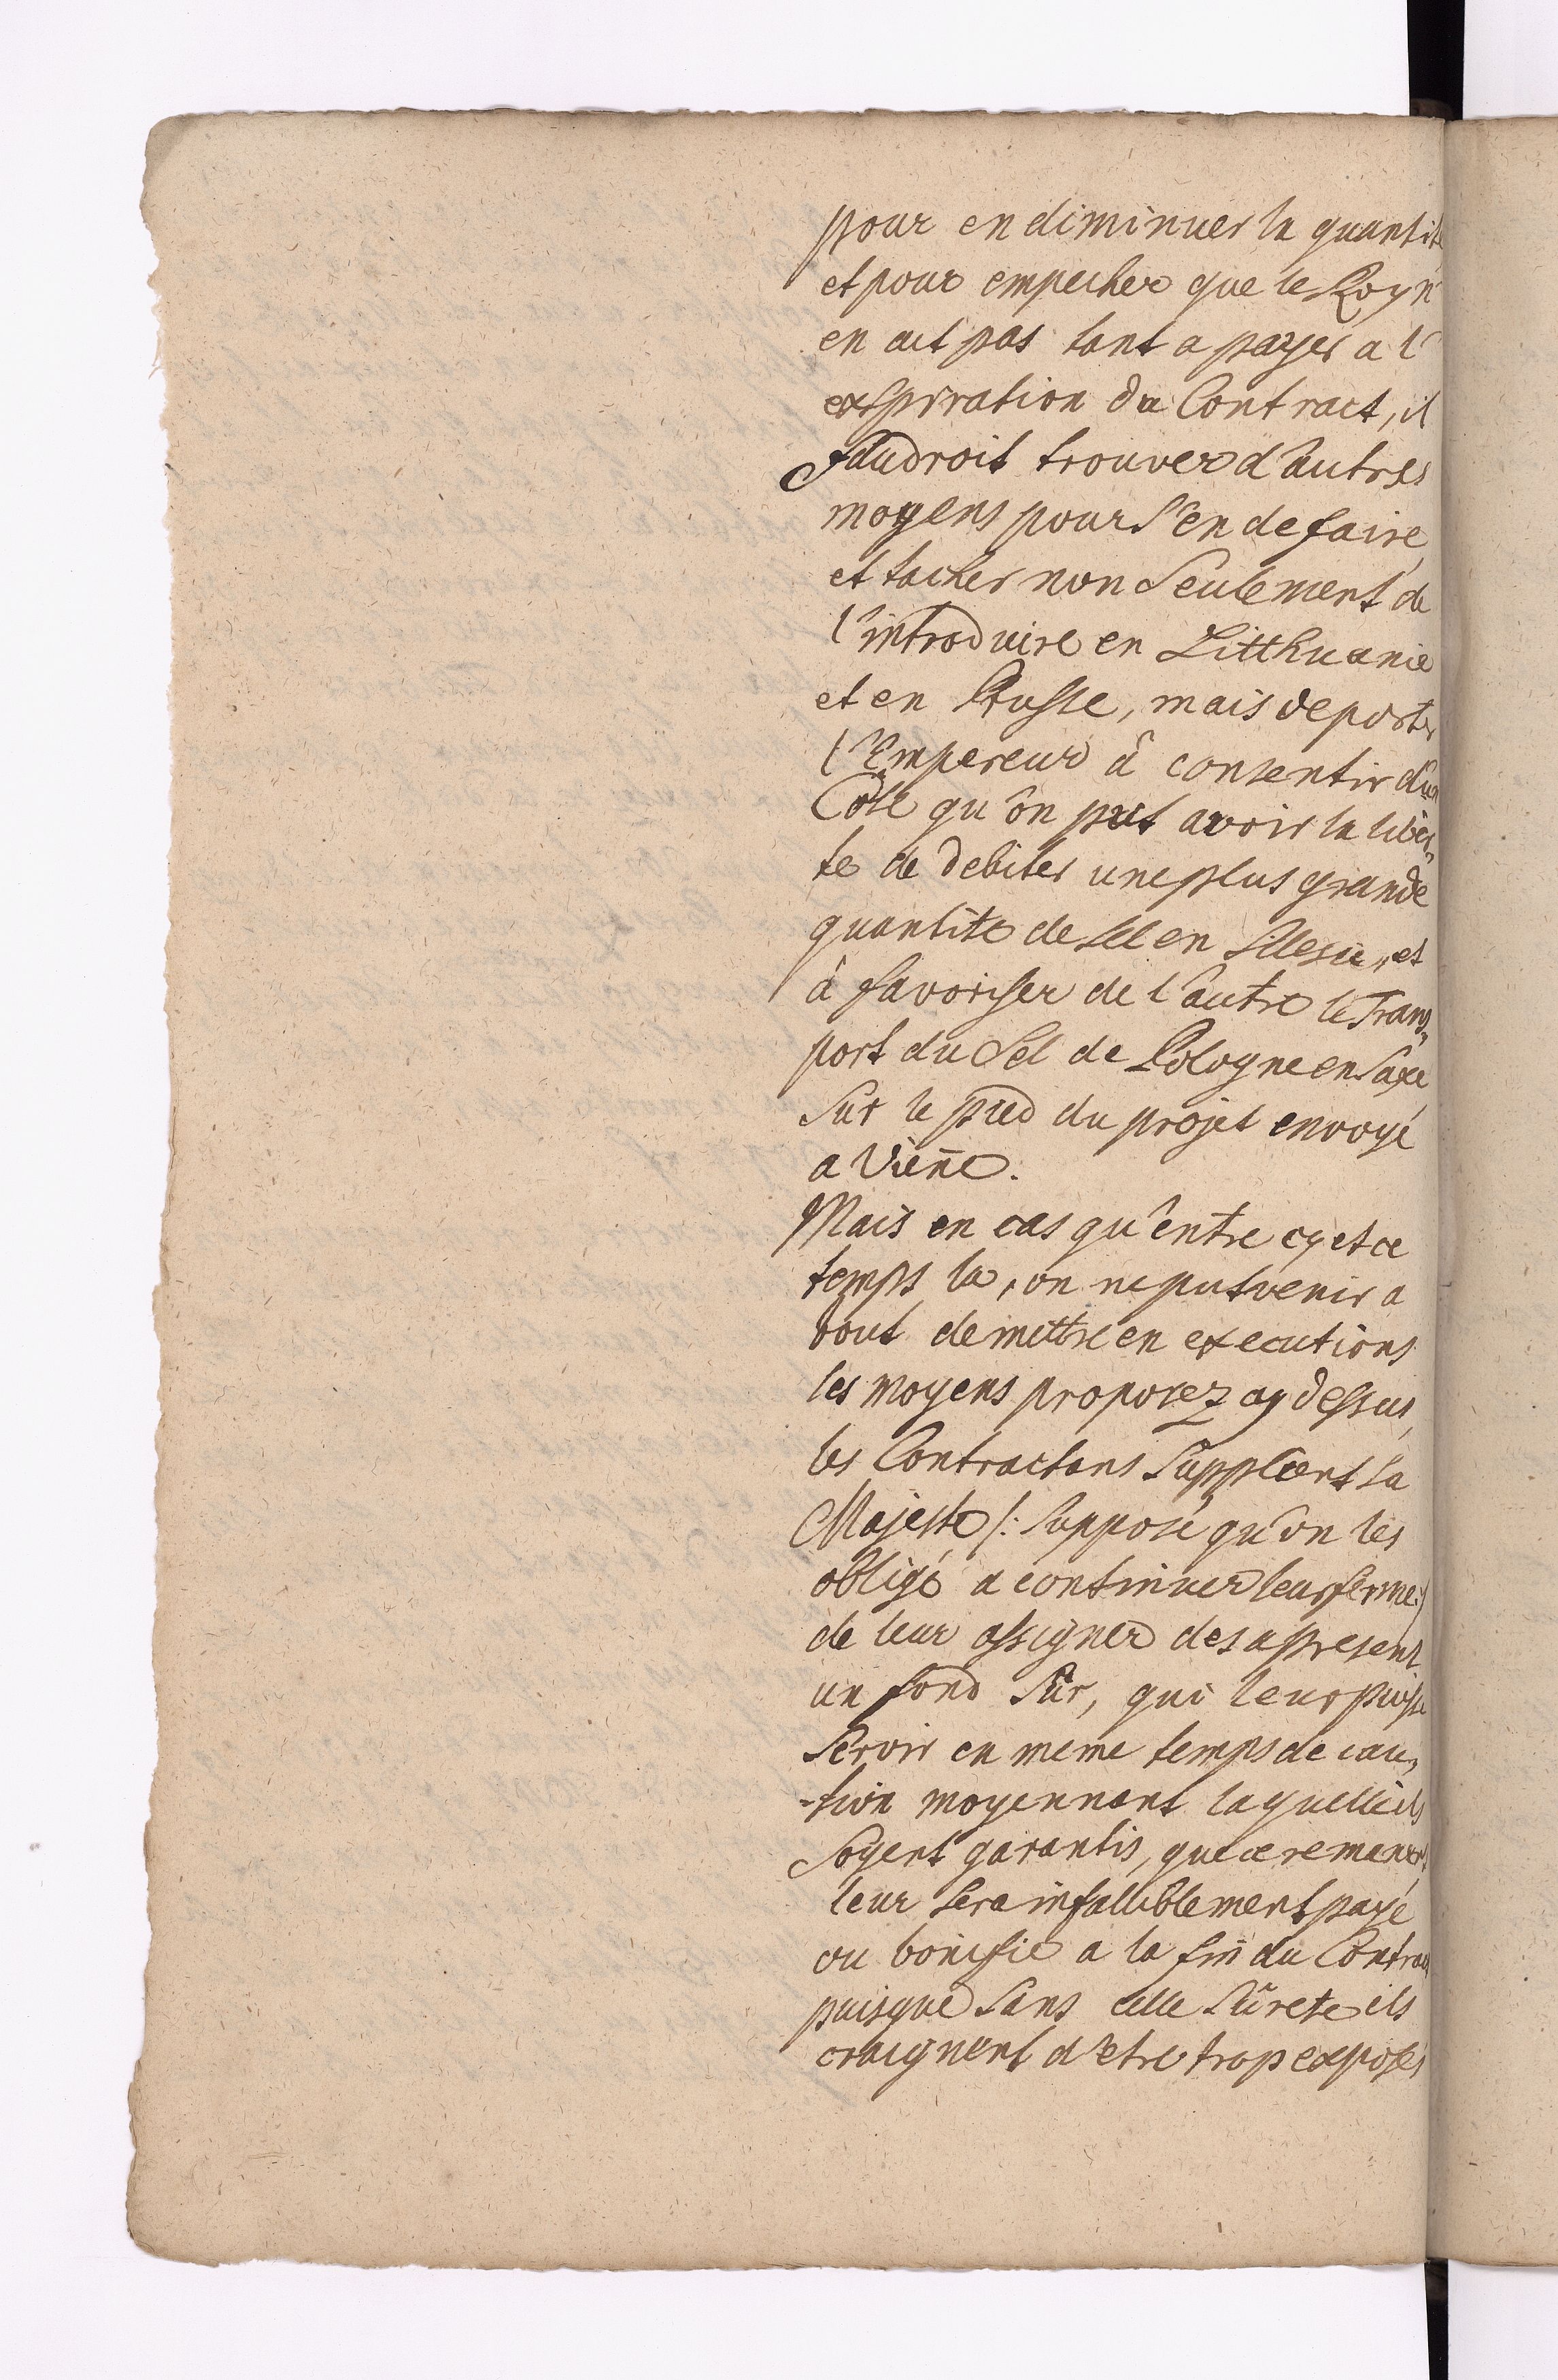 pour en diminuer la quantité
et pour empecher que le Roy n'
en ait pas tant a payer a l'
exspiration du Contract, il
faudroit trouver d'autres
moyens pour s'en defaire,
et tacher non Seulement de
l'introduire en Litthuanie
et en Prusse, mais de porter
l'Empereur à consentir d'un
Coté qu'on put avoir la liber„
te de debiter une plus grande
quantité de sel en Silesie, et
à favoriser de l'autre le Trans„
port du Sel de Pologne en Saxe
Sur le pied du projet envoyé
a Vienne.
Mais en cas qu'entre cy et ce
temps la, on ne put venir a
bout de mettre en executions
les moyens proposez cy dessus,
les Contractans Supplient Sa
Majesté /: Supposé qu'on les
obligé a continuer leur ferme :/
de leur assigner des apresent
un fond Sûr, qui leur puisse
Servir en meme temps de cau„
-tion moyennant laquelle ils
Soyent garantis, que ce remanent
leur sera infalliblement payé
ou bonifié a la fin du Contract
puisque Sans celle Sûreté ils
craignent d'etre trop exposés